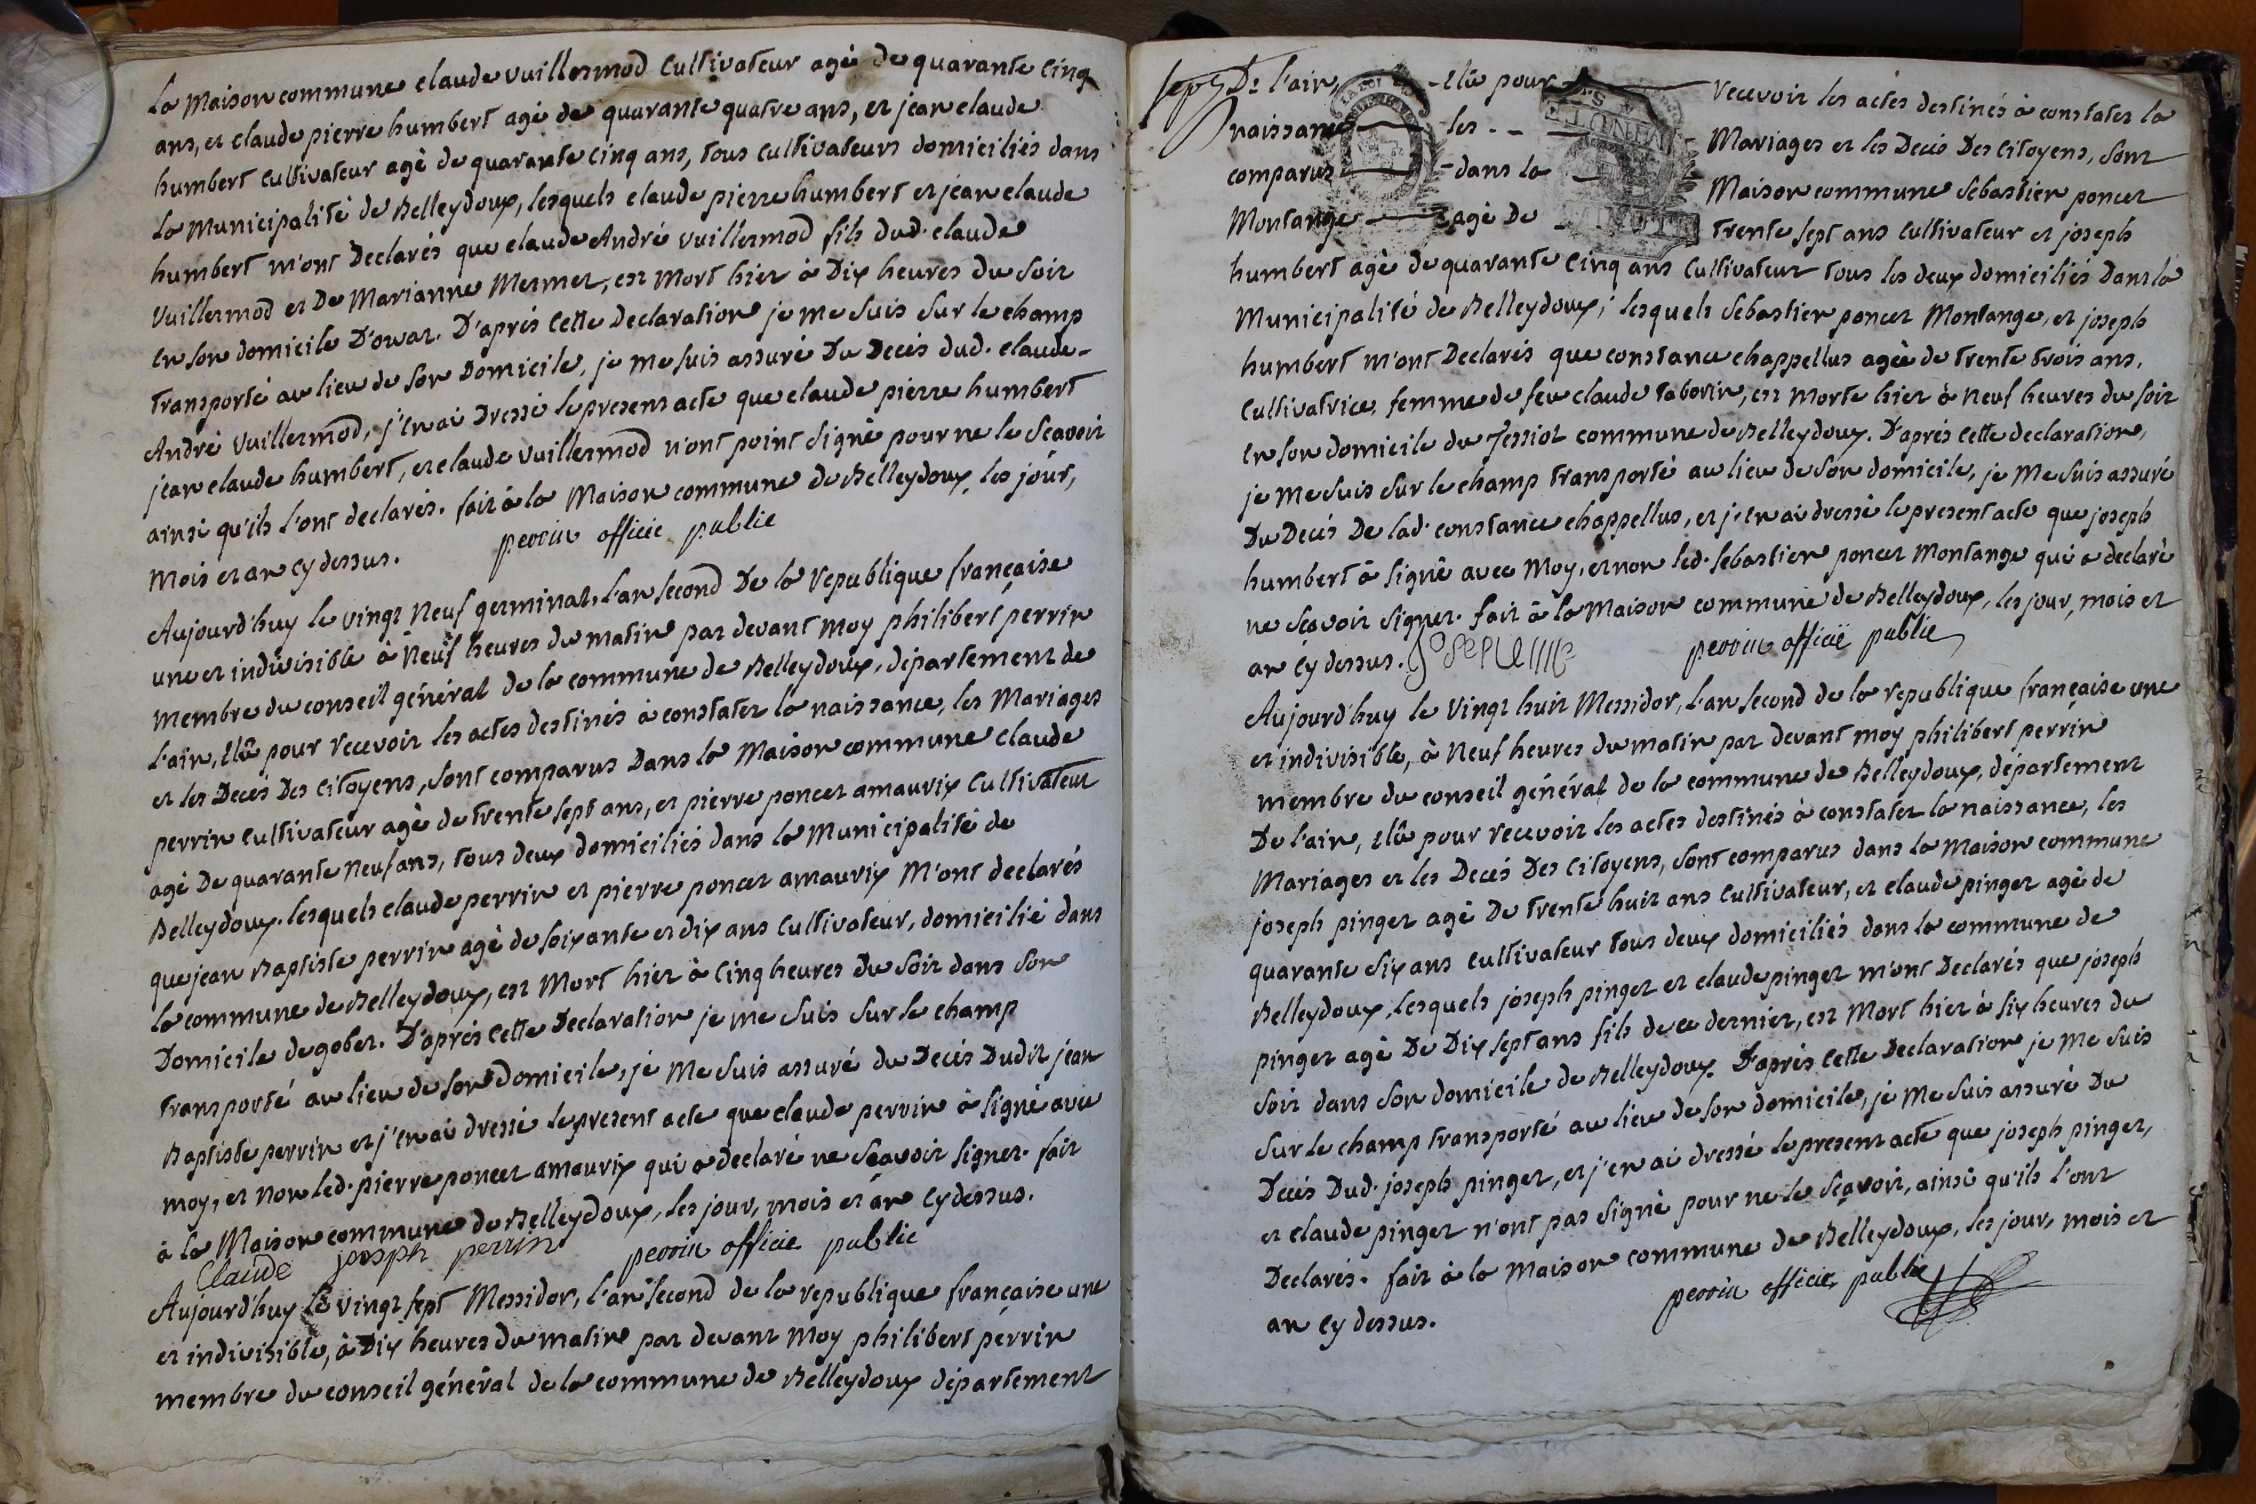 la Maison commune claude vuillermod Cultivateur agé de quarante Cinq
ans, et claude pierre humbert agé de quarante quatre ans, et jean claude
humbert Cultivateur agé de quarante Cinq ans, tous Cultivateurs domiciliés dans
la Municipalité de Belleydoux, lesquels claude pierre humbert et jean claude
humbert m'ont Declarés que claude André vuillermod fils dud. claude
Vuillermod et De Marianne Mermet, est Mort hier à Dix heures du Soir
en son domicile D'orvat. D'après Cette Declaration je me suis sur le champ
transporté au lieu de son Domicile, je me suis assuré Du Decès dud. claude-
André Vuillermod, j'en ai Dressé le present acte que claude pierre humbert
jean claude humbert, et claude Vuillermod n'ont point Signé pour ne le Scavoir
ainsi qu'ils l'ont declarés. fait à la Maison commune de Belleydoux, les jour,
Mois et an cy dessus. perrin officié public
Aujourd'huy le vingt Neuf germinal, l'an Second De la Republique française
une et indivisible à Neuf heures du matin par devant Moy philibert perrin
Membre du conseil général de la commune de Belleydoux, département de
l'ain, élû pour recevoir les actes destinés à constater la naissance, les Mariages
et les Decès Des Citoyens, Sont comparus Dans la Maison commune Claude
perrin Cultivateur agé de trente sept ans, et pierre poncet amaurix Cultivateur
agé De quarante Neuf ans, tous deux domiciliés dans la Municipalité de
Belleydoux. lesquels claude perrin et pierre poncet amaurix M'ont declarés
que jean Baptiste perrin agé de soixante et dix ans Cultivateur, domicilié dans
la commune de Belleydoux, est Mort hier à Cinq heures Du Soir dans son
Domicile de gobet. D'après Cette Declaration je me suis sur le champ
transporté au lieu de son Domicile, je Me suis assuré du Decès Dudit jean
Baptiste perrin et j'en ai dressé le present acte que claude perrin à signé avec
moy, et Non led. pierre poncet amaurix qui a declaré ne Scavoir signer. fait
à la Maison commune de Belleydoux, les jour, mois et an cy dessus.
Claude joseph perrin perrin officié public
Aujourd'huy le vingt sept Messidor, l'an second de la republique française une
et indivisible, à Dix heures du matin par devant Moy philibert perrin
membre du conseil général de la commune de Belleydoux département
De l'ain, élû pour recevoir les actes destinés à constater la
naissance les Mariages et les Decès Des Citoyens, sont
comparus dans la Maison commune Sebastien poncet
Montange agé De trente sept ans Cultivateur et joseph
humbert agé de quarante Cinq ans Cultivateur tous les deux domiciliés Dans la
Municipalité de Belleydoux; lesquels Sebastien poncet Montange, et joseph
humbert m'ont Declarés que constance chappellus agée de trente trois ans,
Cultivatrice, femme de feu claude taborin, est morte hier à Neuf heures du soir
en son domicile du commune de Belleydoux. D'après Cette declaration,
je me suis sur le champ transporté au lieu de son domicile, je Me suis assuré
Du Decès De lad. constance chappellus, et j'en ai dressé le present acte que joseph
humbert à signé avec Moy, et non led. sebastien poncet Montange qui a declaré
ne sçavoir signer. fait à la Maison commune de Belleydoux, les jour, mois et
an cy dessus. perrin officié public
Aujourd'huy le Vingt huit Messidor, l'an second de la republique française une
et indivisible, à Neuf heures du matin par devant moy philibert perrin
membre du conseil général de la commune de Belleydoux, département
De l'ain, élû pour recevoir les actes destinés à constater la naissance, les
Mariages et les Decès Des Citoyens, Sont comparus dans la Maison commune
joseph pinget agé De trente huit ans Cultivateur, et claude pinget agé de
quarante six ans cultivateur tous deux domiciliés dans la commune de
Belleydoux, lesquels joseph pinget et claude pinget m'ont Declarés que joseph
pinget agé De Dix sept ans fils de ce dernier, est Mort hier à six heures du
Soir dans son domicile de Belleydoux. D'après Cette Declaration je me suis
Sur le champ transporté au lieu de son domicile, je Me suis assuré Du
Decès Dud. joseph pinget, et j'en ai dressé le present acte que joseph pinget,
et claude pinget n'ont pas signé pour ne le sçavoir, ainsi qu'ils l'ont
Declarés. fait à la Maison commune de Belleydoux, les jour, mois et
an cy dessus. perrin officié public